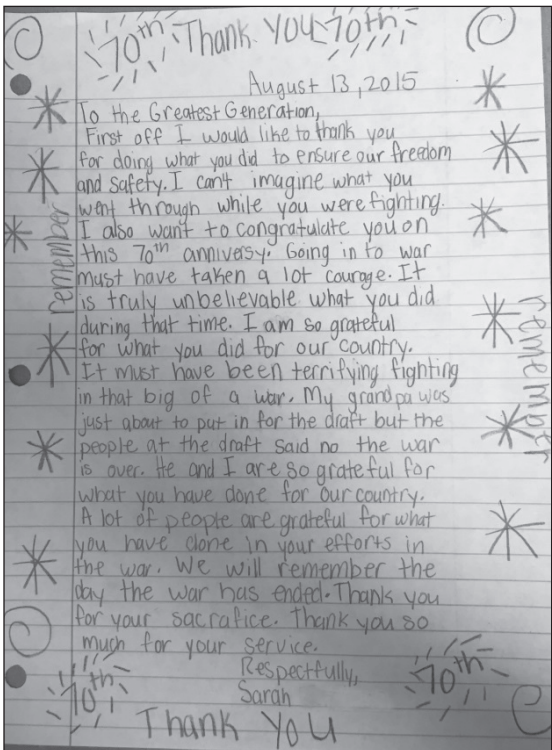 70th Thank You 70th
August 13, 2015
To the Greatest Generation,
First off I would like to thank you
for doing what you did to ensure our freedom
and safety. I can't imagine what you
went through while you were fighting.
I also want to congratulate you on
this 70th anniversy. Going in to war
must have taken a lot courage. It
is truly unbelievable what you did
during that time. I am so grateful
for what you did for our country.
It must have been terrifying fighting
in that big of a war. My grandpa was
just about to put in for the draft but the
people at the draft said no the war
is over. He and I are so grateful for
what you have done for our country.
A lot of people are grateful for what
you have done in your efforts in
the war. We will remember the
day the war has ended. Thank you
for your sacrafice. Thank you so
much for your service.
Respectfully,
Sarah
70th
70th
Thank You
remember
remember